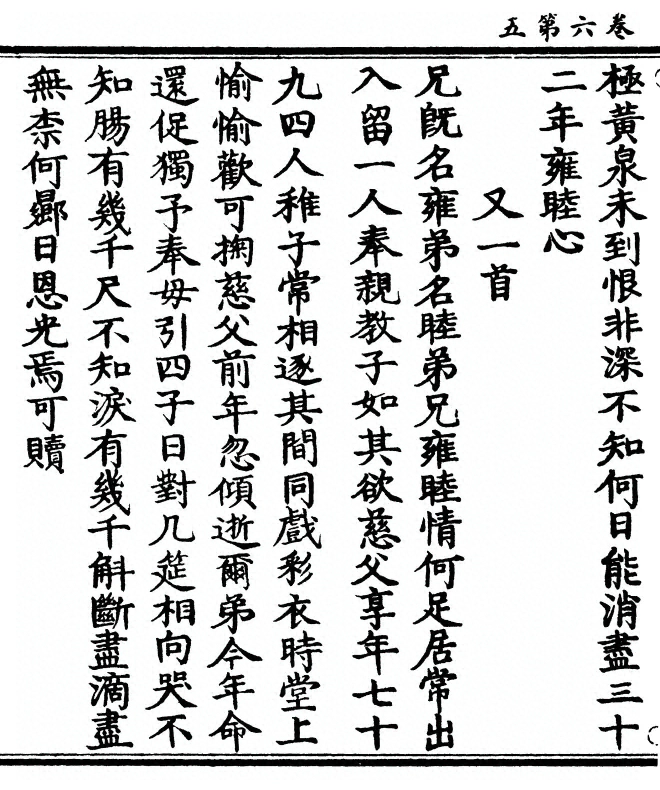 卷六第五
極黃泉未到恨非深不知何日能消盡三十
二年雍睦心
又一首
兄旣名雍弟名睦弟兄雍睦情何足居常出
入留一人奉親教子如其欲慈父享年七十
九四人稚子常相逐其間同戲彩衣時堂上
愉愉歡可掬慈父前年忽傾逝爾弟今年命
還促獨予奉母引四子日對几筵相向哭不
知腸有幾千尺不知淚有幾千斛斷盡滴盡
無柰何曏日恩光焉可贖